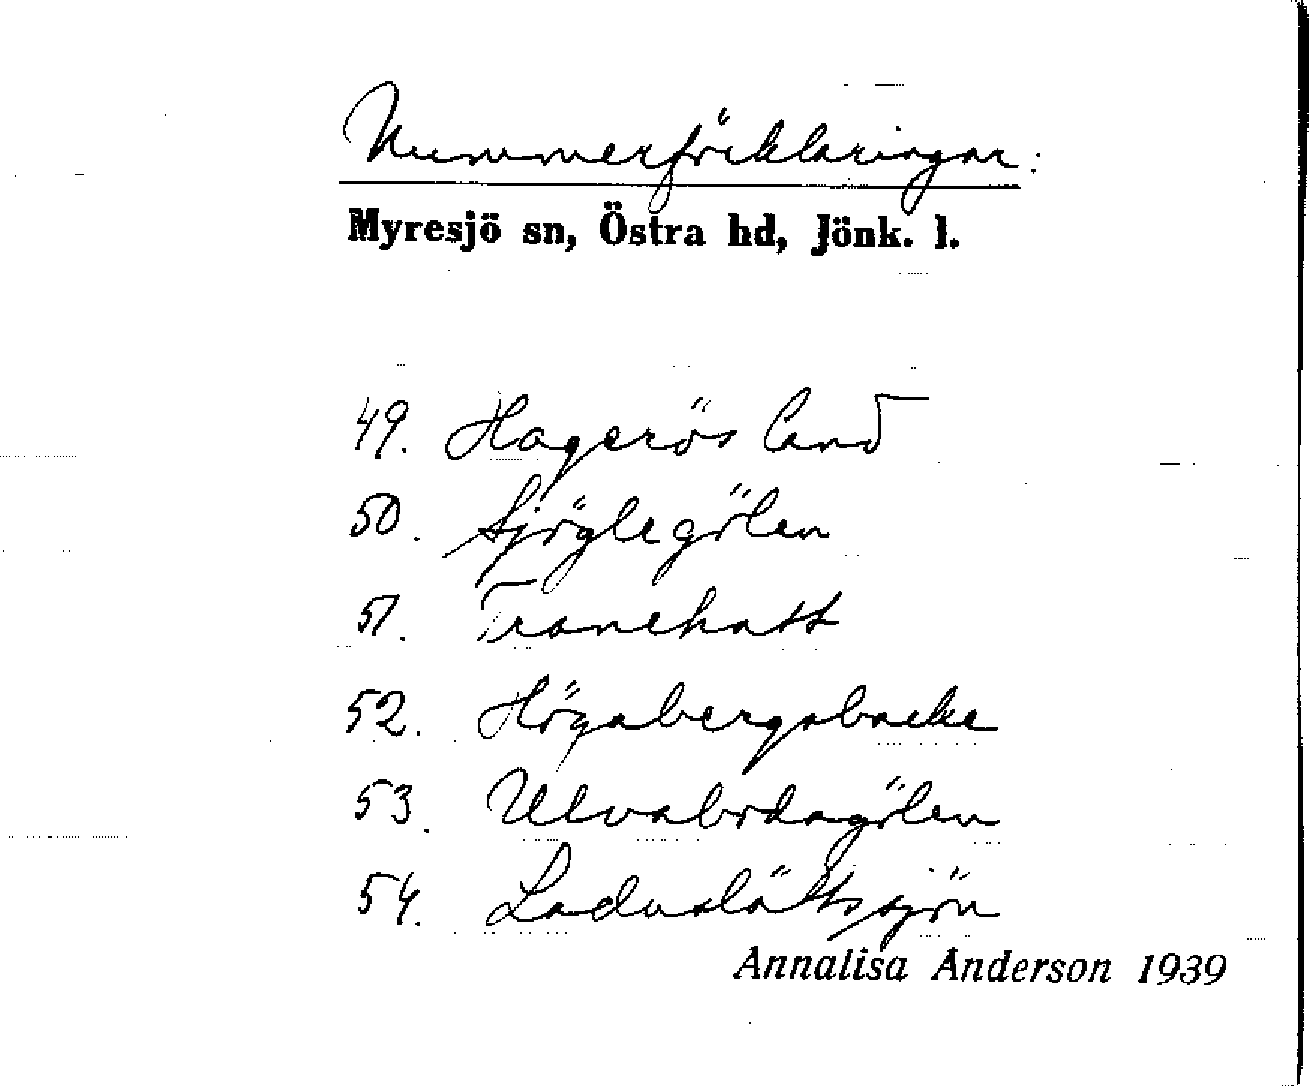 Nummerförklaringar.
Myresjö sn, Östra hd, Jönk. l.
49. Hagerös land
50. Sjöglegölen
51. Tranehatt
52. Högabergabacke
53. Ulvabodagölen
54. Laduslättssjön
Annalisa Anderson 1939